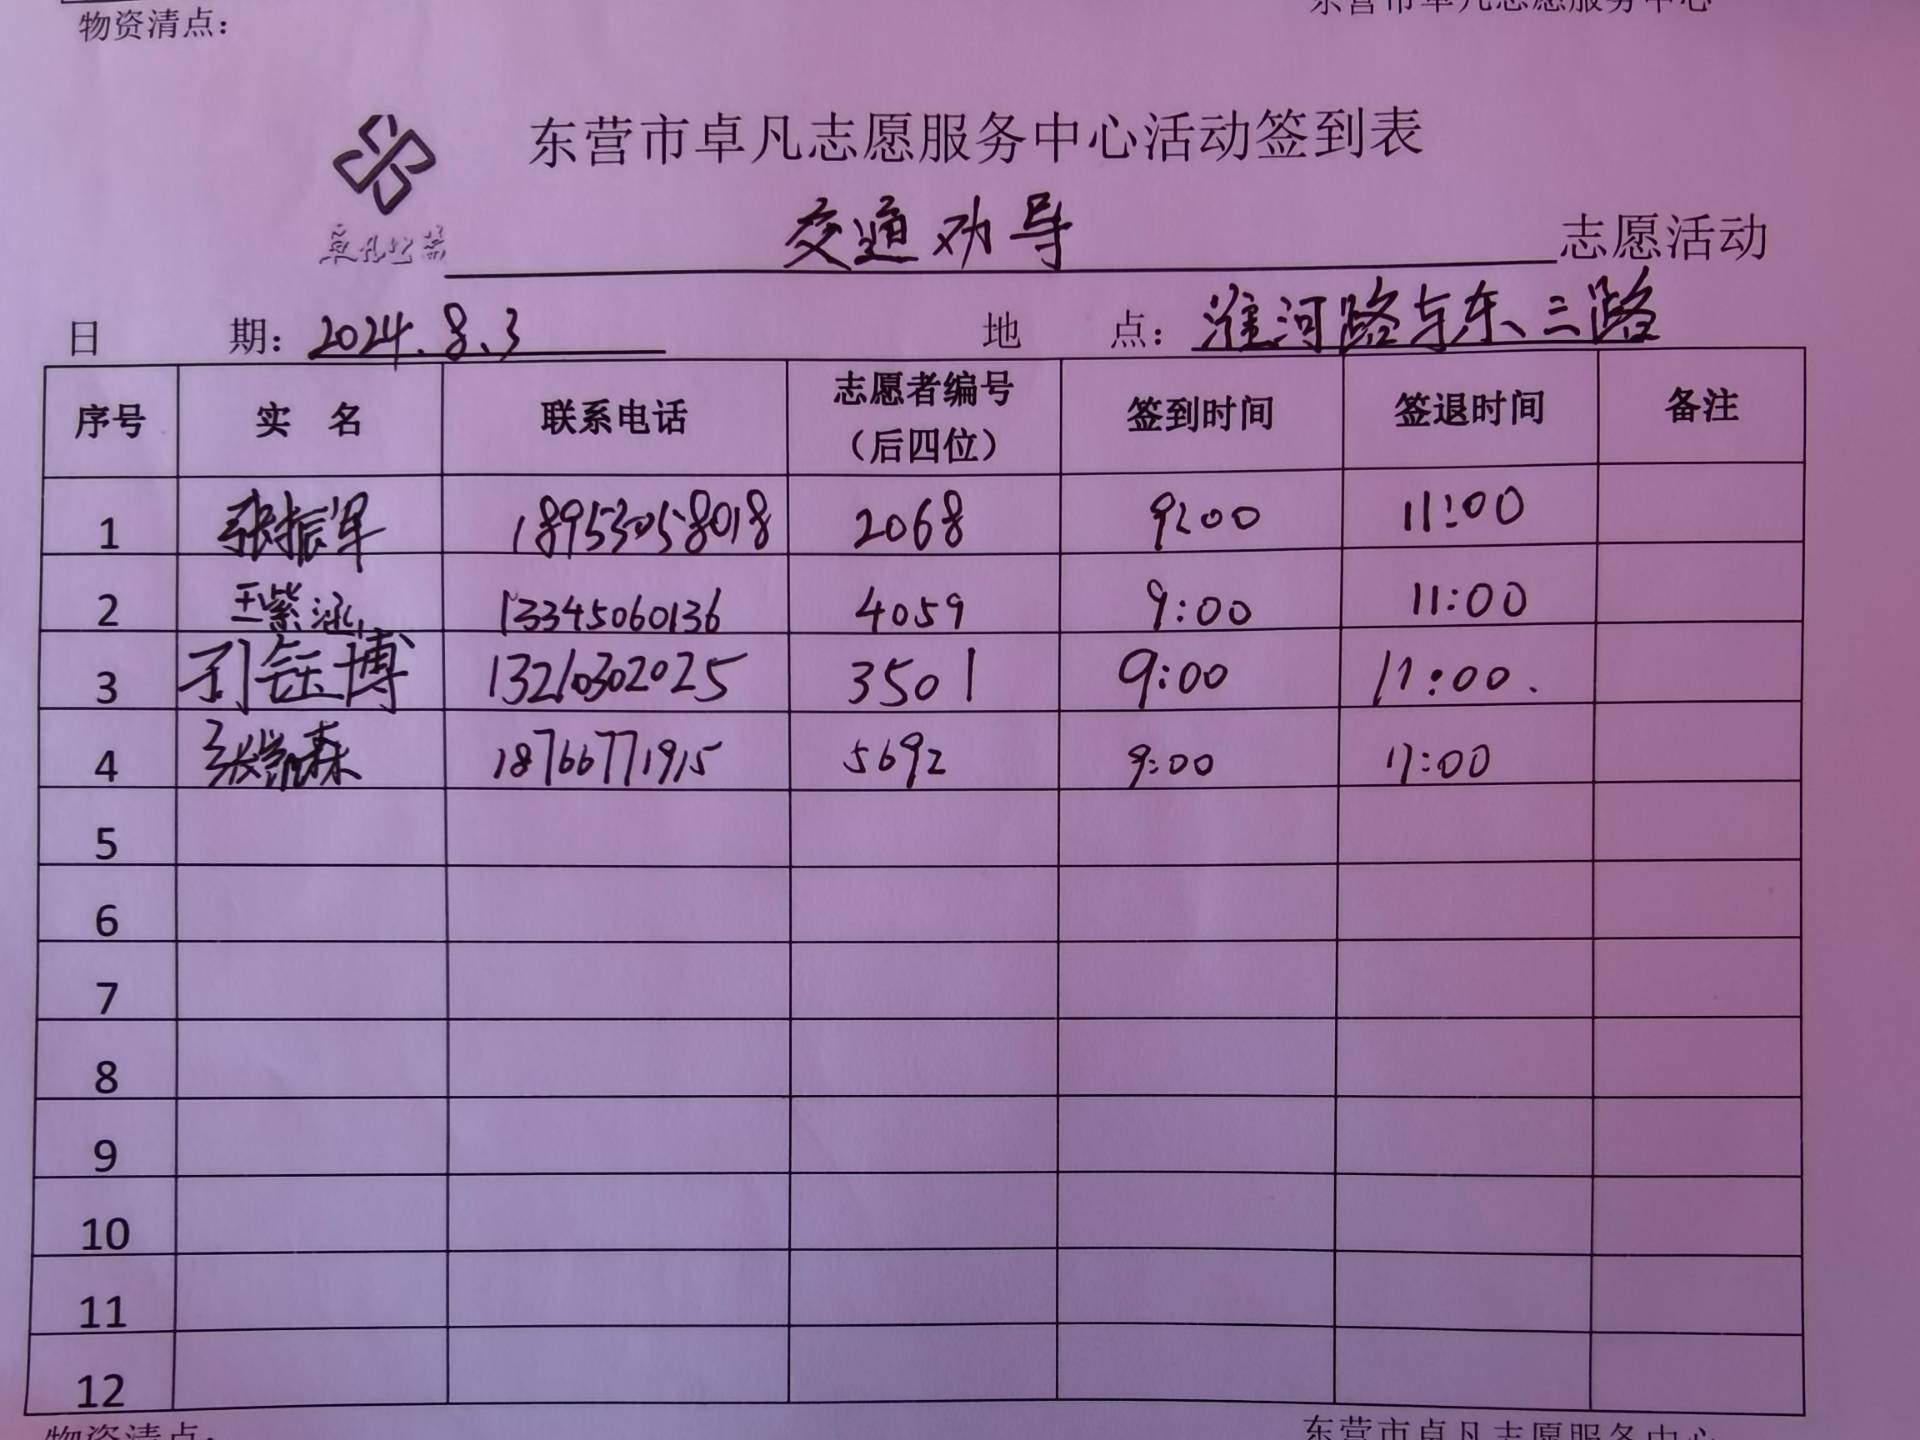 物资清点：
东营市卓凡志愿服务中心
东营市卓凡志愿服务中心活动签到表
卓凡公益
交通劝导 志愿活动
日 期：2024.8.3 地 点：淮河路与东三路
序号 实 名 联系电话 志愿者编号（后四位） 签到时间 签退时间 备注
1 张振军 18953058018 2068 9:00 11:00
2 王紫涵 13345060136 4059 9:00 11:00
3 刘钰博 13210302025 3501 9:00 11:00.
4 张凯森 18766771915 5692 9:00 11:00
5
6
7
8
9
10
11
12
物资清点：
东营市卓凡志愿服务中心